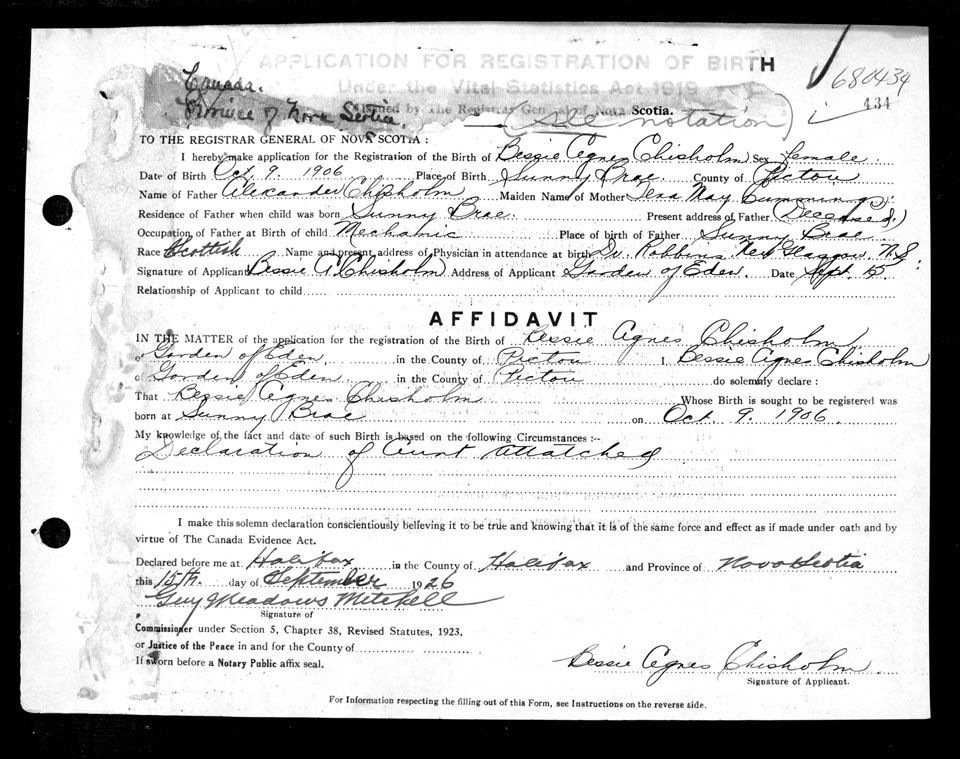 APPLICATION FOR REGISTRATION OF BIRTH
Under the Vital Statistics Act 1919
Canada.
Province of Nova Scotia.
Issued by The Registrar General of Nova Scotia.
(See notation)
680434
434
TO THE REGISTRAR GENERAL OF NOVA SCOTIA :
I hereby make application for the Registration of the Birth of Bessie Agnes Chisholm Sex female
Date of Birth Oct. 9. 1906 Place of Birth Sunny Brae. County of Pictou
Name of Father Alexander Chisholm Maiden Name of Mother Tena May Cumming
Residence of Father when child was born Sunny Brae. Present address of Father (Deceased)
Occupation of Father at Birth of child Mechanic Place of birth of Father Sunny Brae
Race Scottish Name and present address of Physician in attendance at birth Dr. Robbins New Glasgow N.S.
Signature of Applicant Bessie A. Chisholm Address of Applicant Garden of Eden. Date Sept. 15.
Relationship of Applicant to child
AFFIDAVIT
IN THE MATTER of the application for the registration of the Birth of Bessie Agnes Chisholm
of Garden of Eden in the County of Pictou I Bessie Agnes Chisholm
of Garden of Eden in the County of Pictou do solemnly declare :
That Bessie Agnes Chisholm Whose Birth is sought to be registered was
born at Sunny Brae on Oct. 9. 1906
My knowledge of the fact and date of such Birth is based on the following Circumstances :-
Declaration of Aunt Attatched
I make this solemn declaration conscientiously believing it to be true and knowing that it is of the same force and effect as if made under oath and by
virtue of The Canada Evidence Act.
Declared before me at Halifax in the County of Halifax and Province of Nova Scotia
this 15th. day of September 1926
Guy Meadows Mitchell
Signature of
Commissioner under Section 5, Chapter 38, Revised Statutes, 1923,
or Justice of the Peace in and for the County of
If sworn before a Notary Public affix seal.
Bessie Agnes Chisholm
Signature of Applicant.
For Information respecting the filling out of this Form, see Instructions on the reverse side.